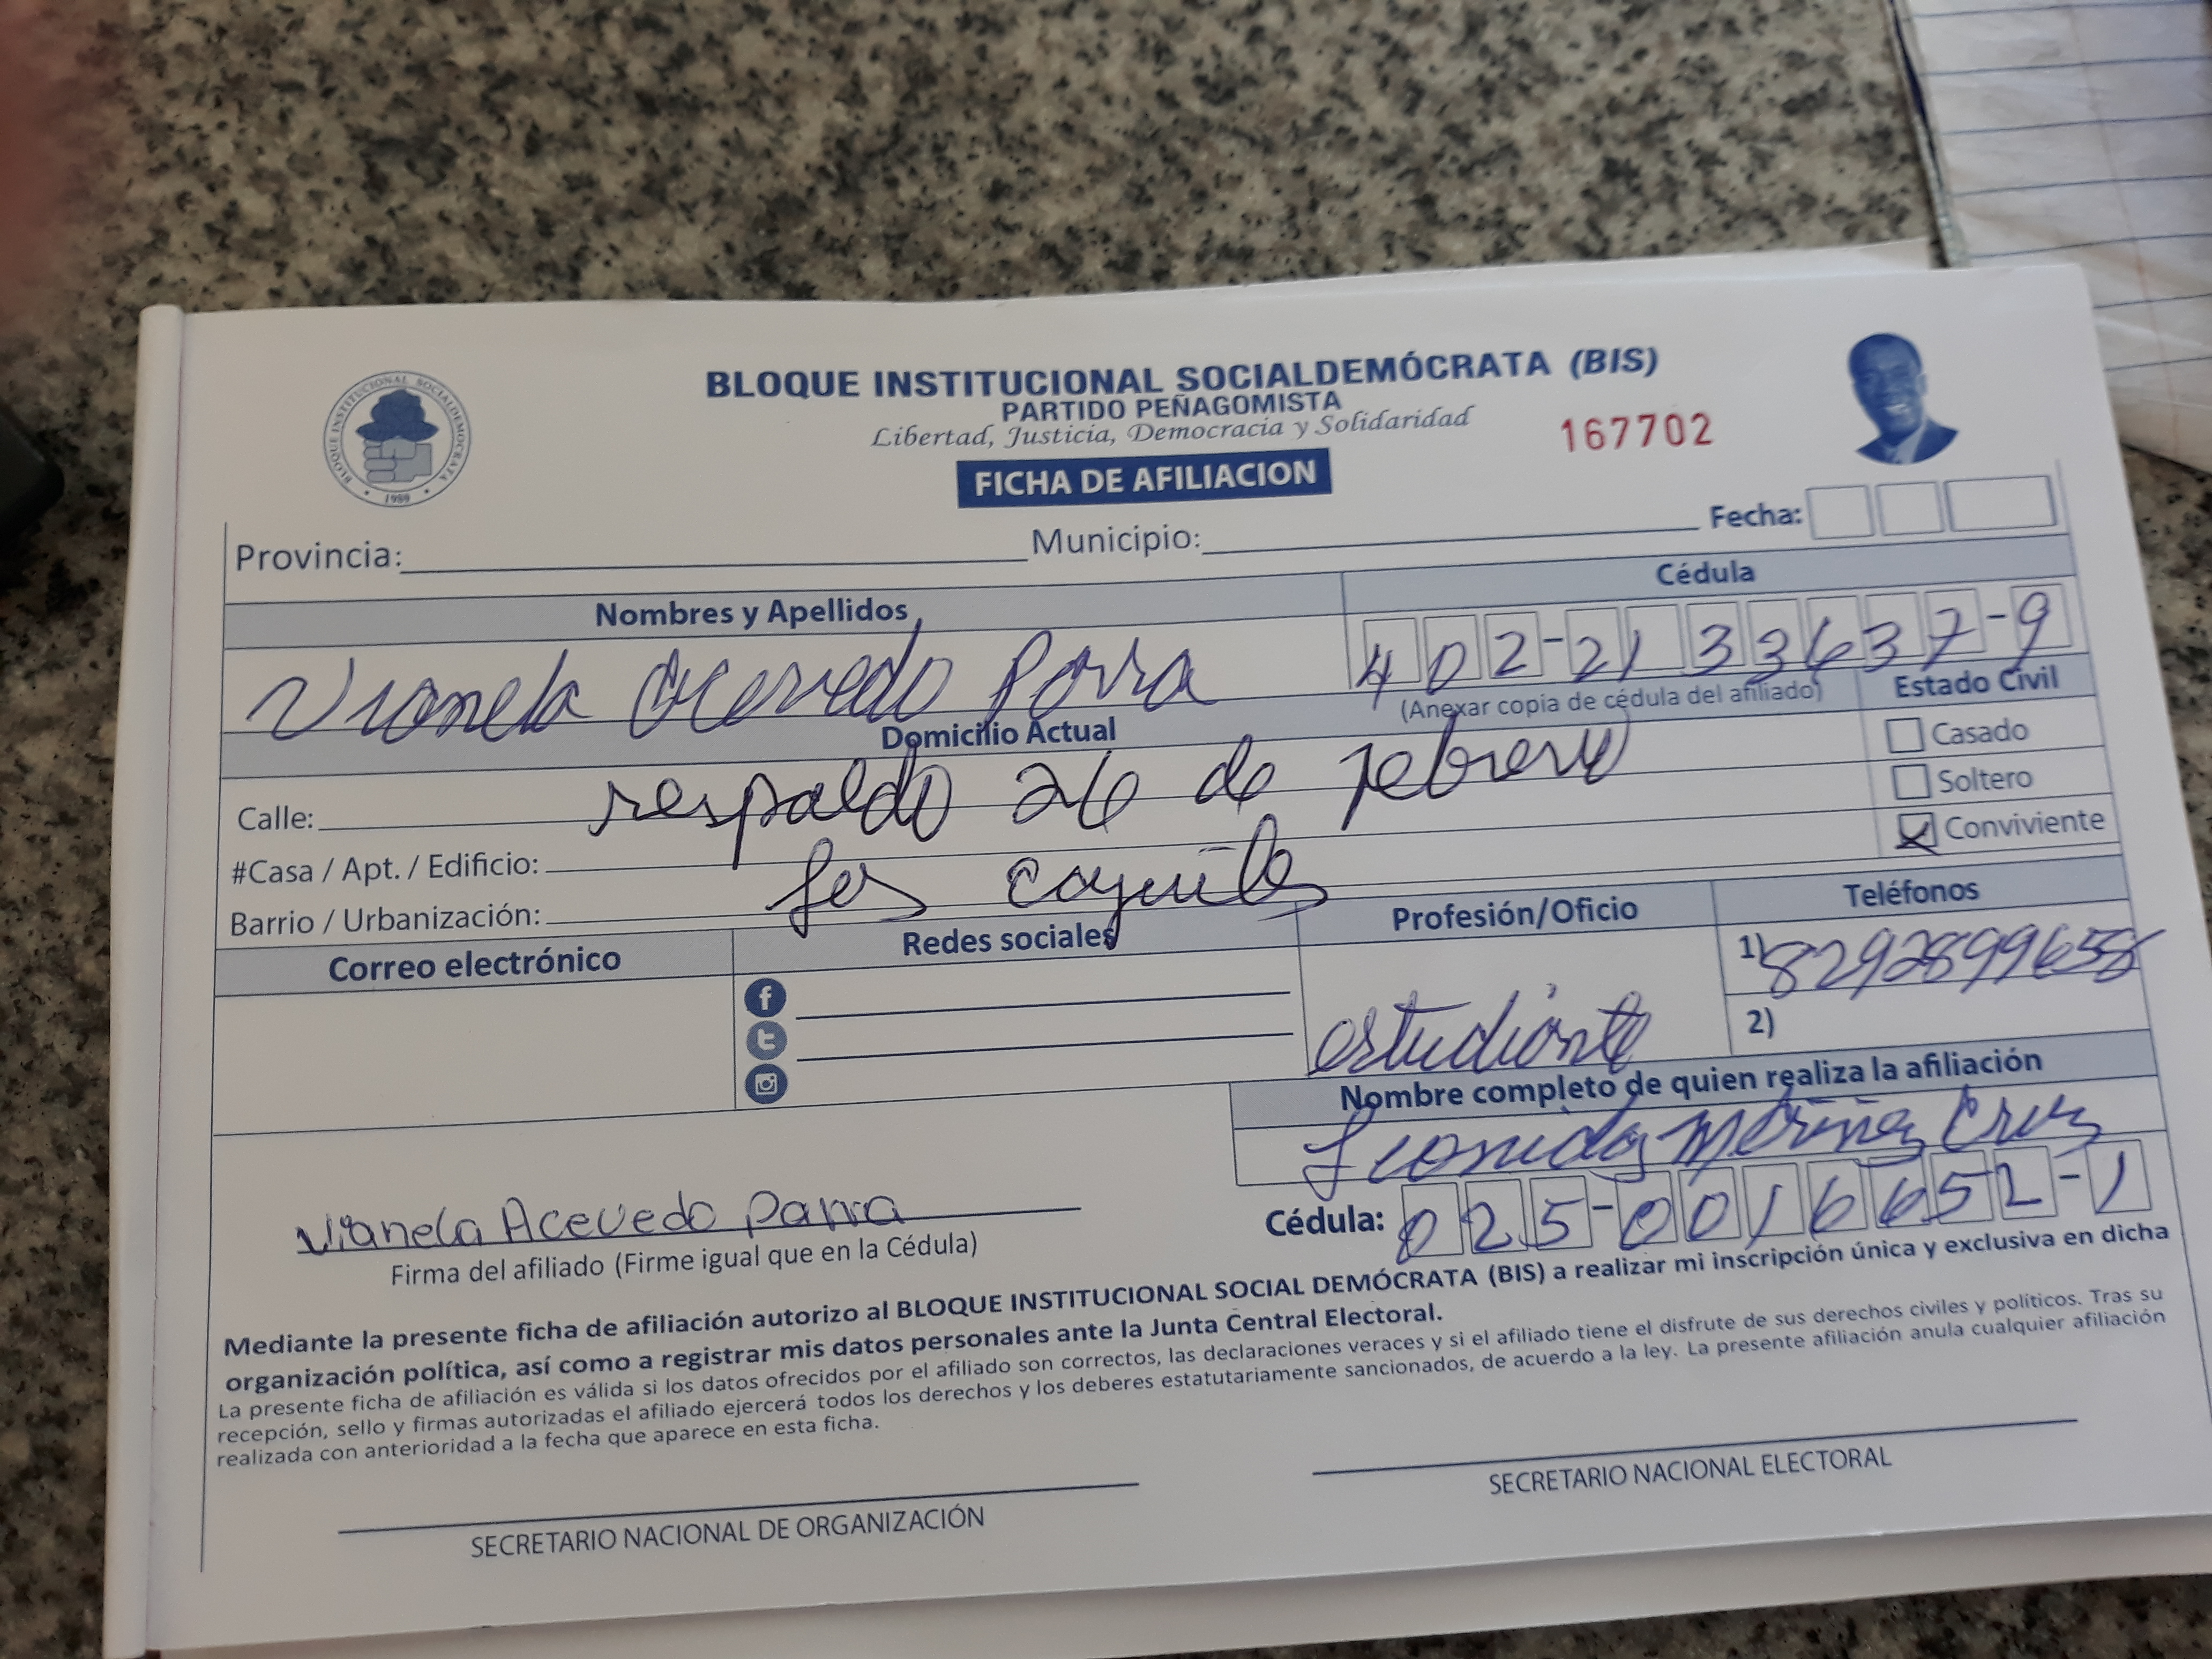 BLOQUE INSTITUCIONAL SOCIALDEMÓCRATA (BIS)
PARTIDO PEÑAGOMISTA
Libertad, Justicia, Democracia y Solidaridad
167702
FICHA DE AFILIACION
BLOQUE INSTITUCIONAL SOCIALDEMOCRATA
1989
Provincia: Municipio: Fecha:
Nombres y Apellidos Cédula
Vianela Acevedo Parra 402-2133637-9
(Anexar copia de cédula del afiliado) Estado Civil
Domicilio Actual
Casado
Calle: respaldo 26 de febrero
Soltero
#Casa / Apt. / Edificio:
Conviviente
Barrio / Urbanización: los
Correo electrónico Redes sociales Profesión/Oficio Teléfonos
1) 8292899658
estudiante
2)
Nombre completo de quien realiza la afiliación
Leonidas Cruz
Cédula: 025-0016652-1
Vianela Acevedo Parra
Firma del afiliado (Firme igual que en la Cédula)
Mediante la presente ficha de afiliación autorizo al BLOQUE INSTITUCIONAL SOCIAL DEMÓCRATA (BIS) a realizar mi inscripción única y exclusiva en dicha
organización política, así como a registrar mis datos personales ante la Junta Central Electoral.
La presente ficha de afiliación es válida si los datos ofrecidos por el afiliado son correctos, las declaraciones veraces y si el afiliado tiene el disfrute de sus derechos civiles y políticos. Tras su
recepción, sello y firmas autorizadas el afiliado ejercerá todos los derechos y los deberes estatutariamente sancionados, de acuerdo a la ley. La presente afiliación anula cualquier afiliación
realizada con anterioridad a la fecha que aparece en esta ficha.
SECRETARIO NACIONAL DE ORGANIZACIÓN
SECRETARIO NACIONAL ELECTORAL